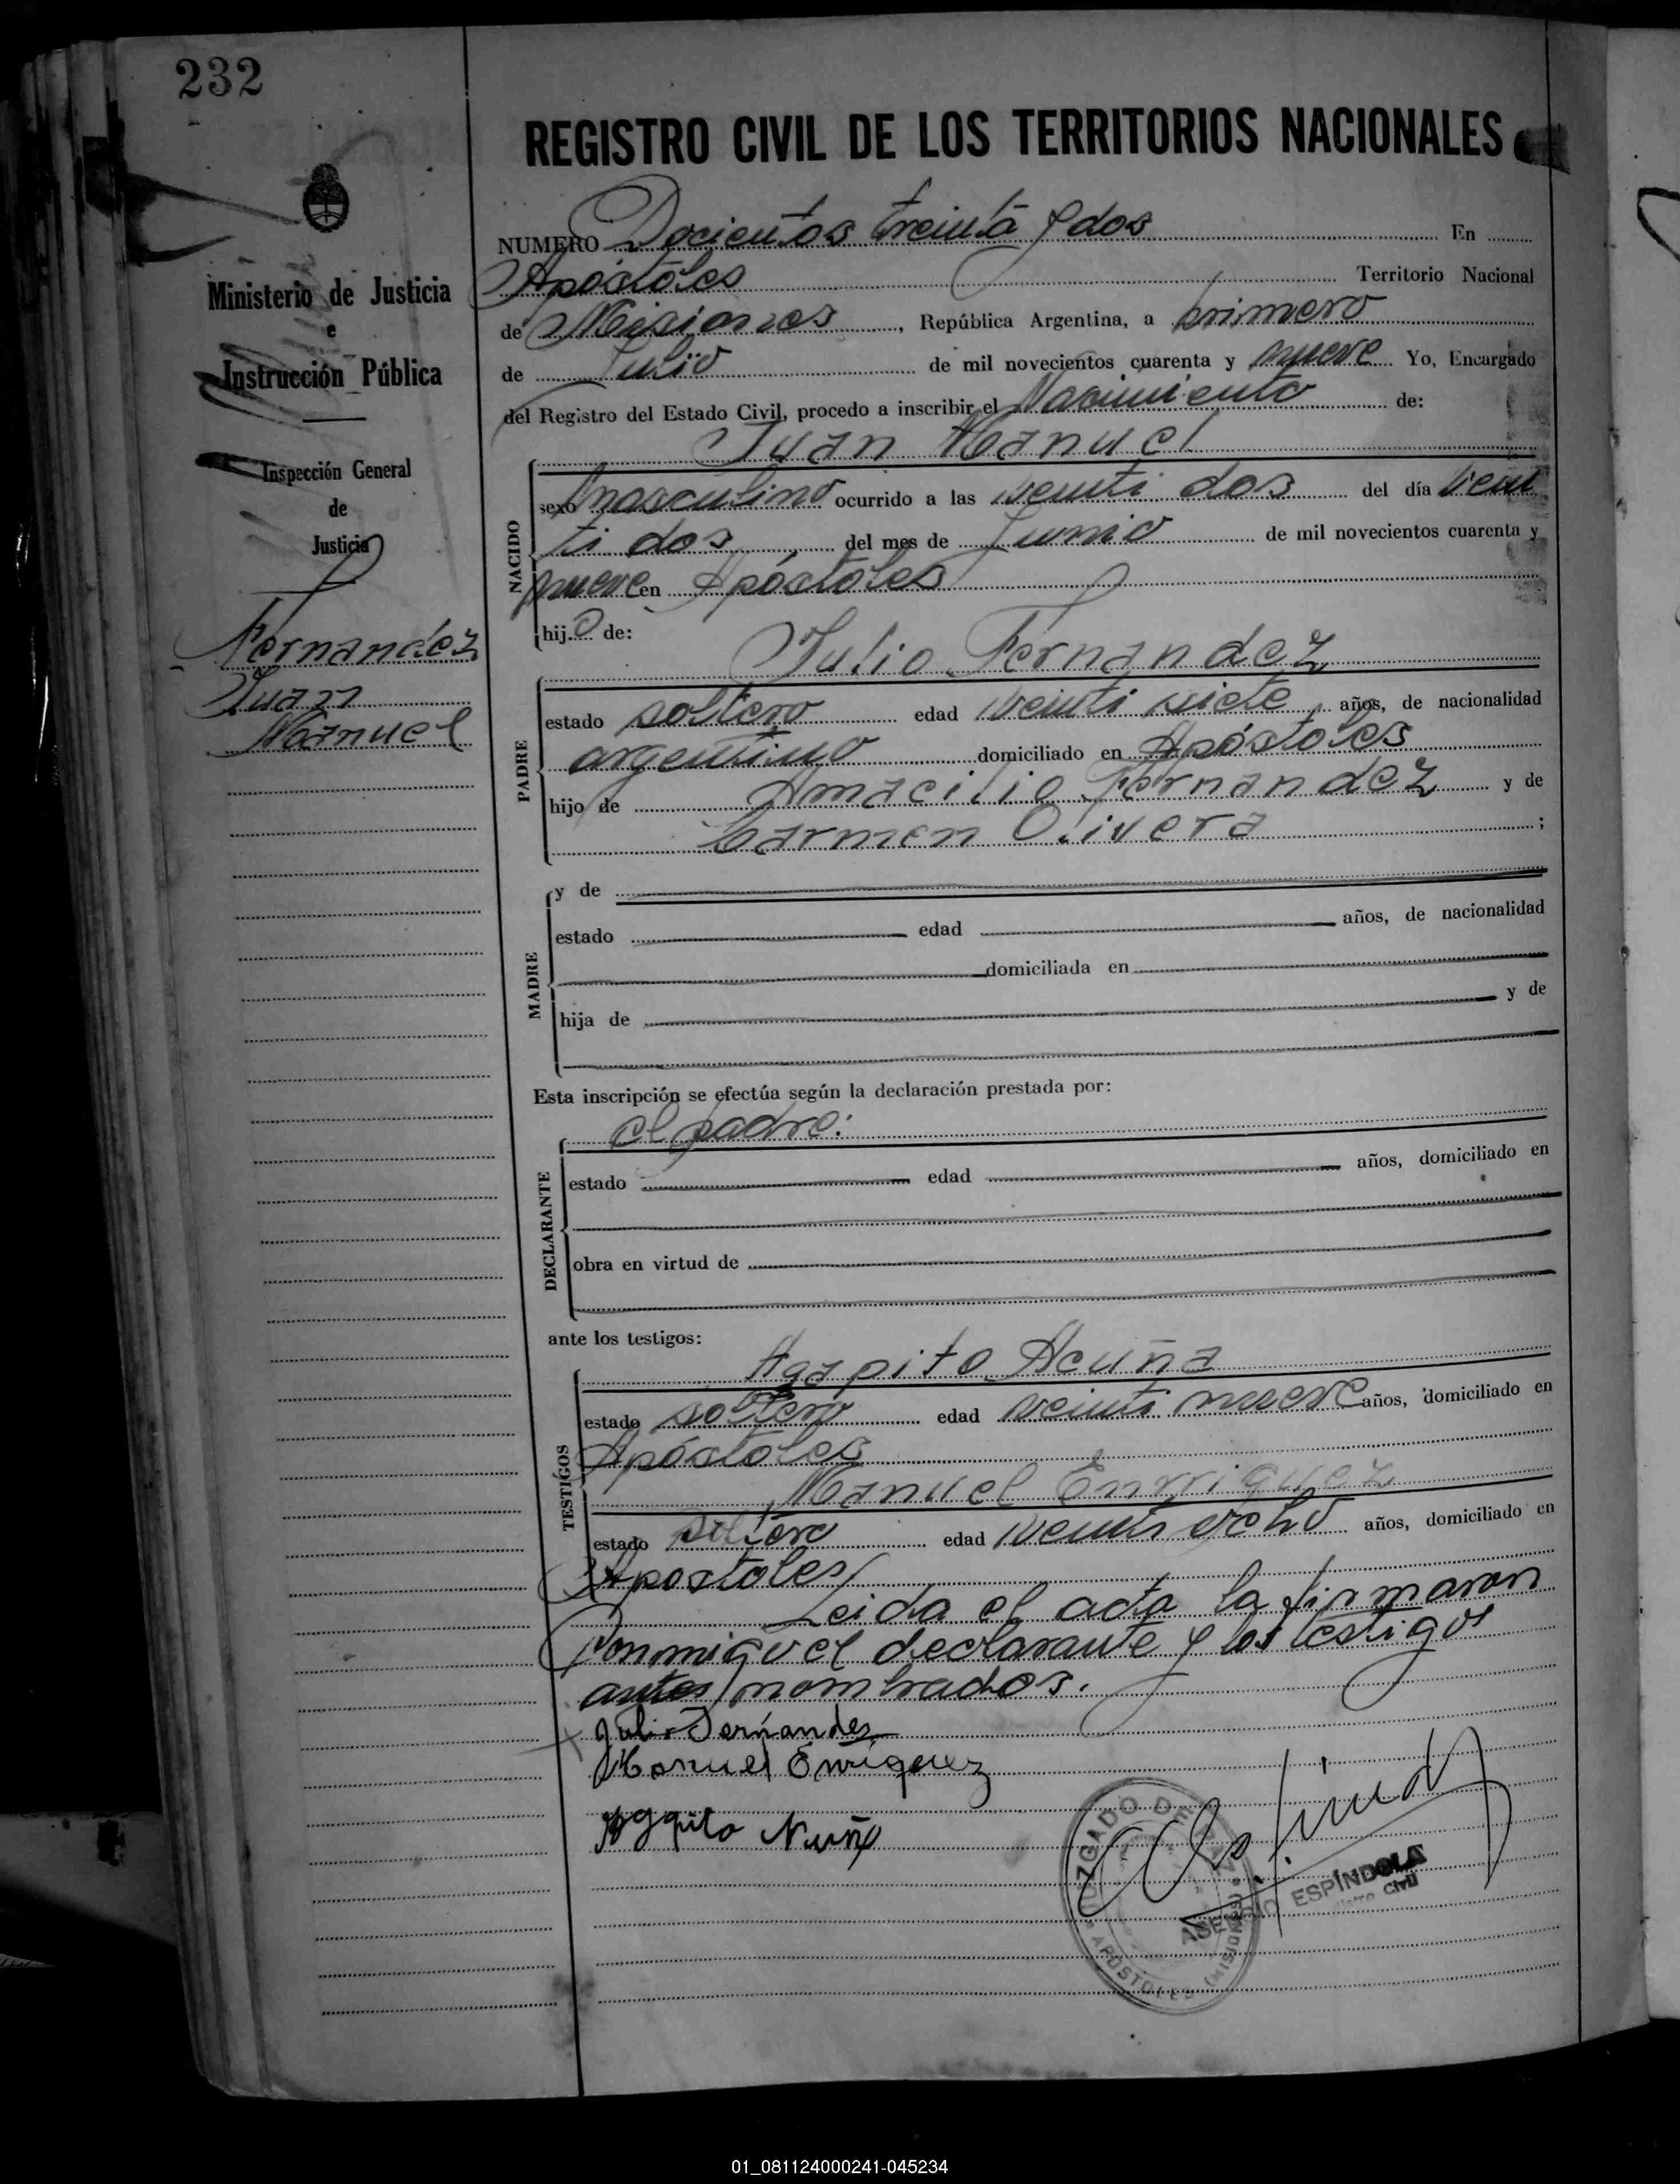 232
REGISTRO CIVIL DE LOS TERRITORIOS NACIONALES
Ministerio de Justicia
e
Instrucción Pública
Inspección General
de
Justicia
Fernandez
Juan
Manuel
NUMERO Docientos treinta y dos En
Apóstoles Territorio Nacional
de Misiones, República Argentina, a primero
de Julio de mil novecientos cuarenta y nueve Yo, Encargado
del Registro del Estado Civil, procedo a inscribir el Nacimiento de:
Juan Manuel
NACIDO
sexo masculino ocurrido a las veinti dos del día vein
ti dos del mes de Junio de mil novecientos cuarenta y
nueve en Apóstoles
hijo de:
Julio Fernandez
PADRE
estado soltero edad veinti siete años, de nacionalidad
argentino domiciliado en Apóstoles
hijo de Amacilio Fernandez y de
Carmen Olivera ;
MADRE
y de
estado edad años, de nacionalidad
domiciliada en
hija de y de
Esta inscripción se efectúa según la declaración prestada por:
el padre:
DECLARANTE
estado edad años, domiciliado en
obra en virtud de
ante los testigos:
Agapito Acuña
TESTIGOS
estado soltero edad veinti nueve años, domiciliado en
Apóstoles
Manuel Enrriquez
estado soltero edad veinti ocho años, domiciliado en
Apostoles
Leida el acta la firmaron
conmigo el declarante y los testigos
antes nombrados.
Julio Fernandes
Manuel Enriquez
Agapito
JUZGADO DE PAZ
APOSTOLES (MISIONES)
ASENCIO ESPÍNDOLA
Civil
01_081124000241-045234